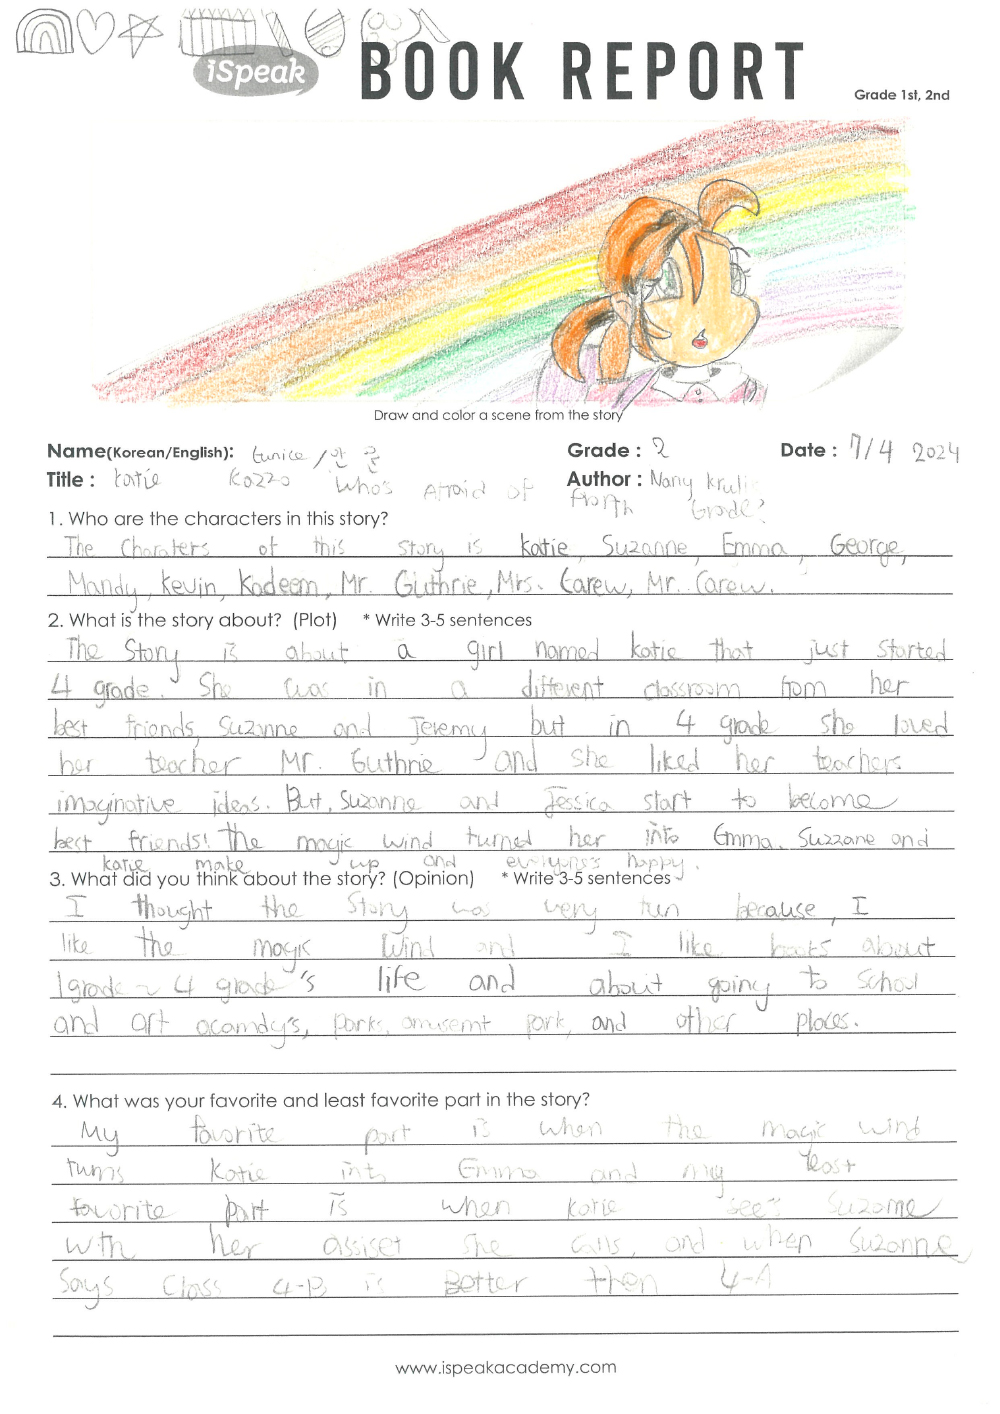 iSpeak
BOOK REPORT
Grade 1st, 2nd
Draw and color a scene from the story
Name(Korean/English): Eunice /안
Grade : 2
Date : 7/4 2024
Title : Katie Kazzo Who's Afraid of
Author : Nany Kruli
Forth Grade?
1. Who are the characters in this story?
The Charaters of this story is katie, Suzanne, Emma, George,
Mandy, Kevin, Kadeem, Mr. Guthrie, Mrs. Carew, Mr. Carew.
2. What is the story about? (Plot) * Write 3-5 sentences
The Story is about a girl named katie that just started
4 grade. She was in a different classroom from her
best friends, Suzanne and Jeremy but in 4 grade she loved
her teacher Mr. Guthrie and she liked her teachers
imaginative ideas. But, Suzanne and Jessica start to become
best friends! The magic wind turned her into Emma. Suzzane and
katie make up and everyone's happy.
3. What did you think about the story? (Opinion) * Write 3-5 sentences
I thought the Story was very fun because, I
like the magic Wind and I like books about
1grade ~ 4 grade's life and about going to School
and art acamdy's, parks, amusemt park, and other places.
4. What was your favorite and least favorite part in the story?
My favorite part is when the magic wind
turns Katie into Emma and my least
favorite part is when katie see's Suzanne
with her she calls, and when Suzanne
Says Class 4-B is Better then 4-A
www.ispeakacademy.com